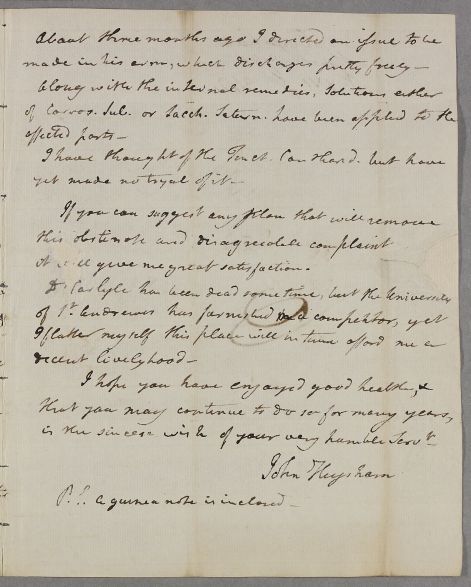 About three months ago I directed an issue to be
made in his arm, which discharges pretty freely—
Along with the internal remedies, solutions either
of Corros. Sub. or Sacch. Saturn. have been applied to the
affected parts—
I have thought of the Tinct. Canthard. but have
yet made no tryal of it—
If you can suggest any plan that will remove
this obstinate and disagreeable complaint
it will give me great satisfaction.
Dr Carlyle has been dead sometime, but the University
of St. Andrews has furnished me a competitor, yet
I flatter myself this place will in time afford me a
decent livelyhood—
I hope you have enjoyed good health, &
that you may continue to do so for many years,
is the sincere wish of your very humble Servt.
John Heysham
P.S. a guinea note is inclosed—